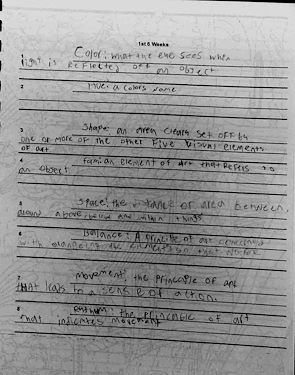 1st 6 Weeks
1
Color: what the eye sees when
light is reflected off an object
2
Hue: a colors name
3
Shape: an area clears set off by
one or more of the other Five Visual elements
of art
4
Form: an element of art that refers to
an object
5
Space: the distance of area between,
around above below and within things
6
Balance: A principle of art concerned
with the elements
7
movement the principle of art
that leads to a sense of action.
8
Rythum: the principle of art
that indicates movement